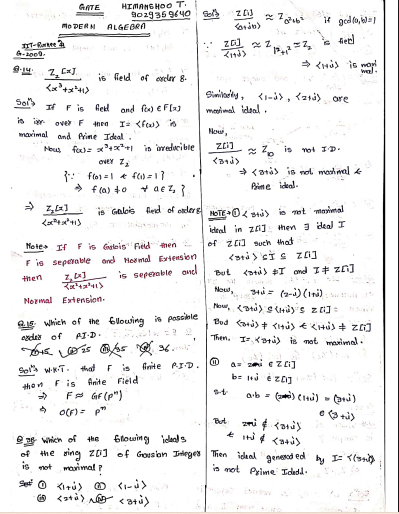 GATE HIMANSHOO T.
9029359640
MODERN ALGEBRA
IIT-Roorkee
G-2009.
Q.14. Z₂[x] / <x³+x²+1> is field of order 8.
Solⁿ If F is field and f(x) ∈ F[x]
is irr. over F then I = <f(x)> is
maximal and Prime Ideal.
Now f(x) = x³+x²+1 is irreducible
over Z₂
{∵ f(0)=1 & f(1)=1}
⇒ f(a) ≠ 0 ∀ a ∈ Z₂}
⇒ Z₂[x] / <x³+x²+1> is Galois field of order 8
Note→ If F is Galois Field then
F is seperable and Normal Extension
then Z₂[x] / <x³+x²+1> is seperable and
Normal Extension.
Q.15. Which of the following is possible
order of P.I.D.
15 25 35 36
Solⁿ W.K.T. that F is finite P.I.D.
then F is finite Field
⇒ F ≈ GF(pⁿ)
⇒ O(F) = pⁿ
Which of the following ideals
of the ring Z[i] of Gausian Integers
is not maximal?
Solⁿ ① <1+i> ⑪ <1-i>
<2+i> <3+i>
Solⁿ Z[i] / <a+ib> ≈ Z_{a²+b²} if gcd(a,b)=1
∵ Z[i] / <1+i> ≈ Z_{1²+1²} ≈ Z₂ is field
⇒ <1+i> is maximal.
Similarly, <1-i>, <2+i> are
maximal ideal.
Now,
Z[i] / <3+i> ≈ Z₁₀ is not I.D.
⇒ <3+i> is not maximal &
Prime ideal.
NOTE→① <3+i> is not maximal
ideal in Z[i] then ∃ ideal I
of Z[i] such that
<3+i> ⊆ I ⊆ Z[i]
But <3+i> ≠ I and I ≠ Z[i]
Now, 3+i = (2-i)(1+i)
Now, <3+i> ⊆ <1+i> ⊆ Z[i]
But <3+i> ≠ <1+i> & <1+i> ≠ Z[i]
Then, I = <3+i> is not maximal.
⑪ a = ∈ Z[i]
b = 1+i ∈ Z[i]
s.t. a·b = (1+i) = (3+i)
∈ <3+i>
But ∉ <3+i>
& 1+i ∉ <3+i>
Then ideal generated by I = <3+i>
is not Prime Ideal.